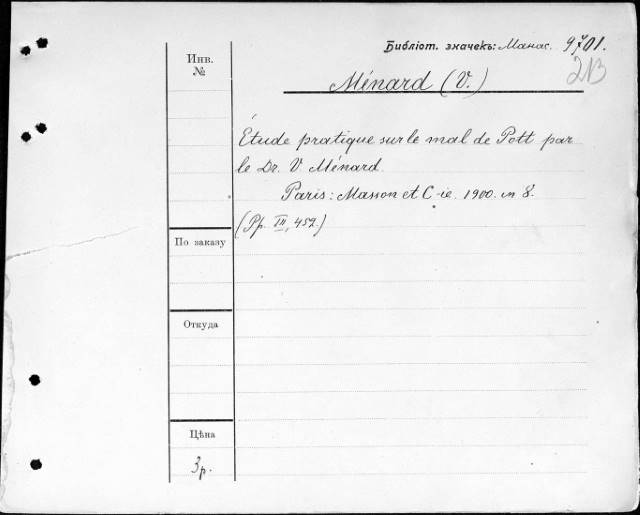 Библіот. значекъ: Манас. 9701.
2В
Инв. №
Ménard (V.)
Étude pratique sur le mal de Pott par
le Dr. V. Ménard.
Paris: Masson et C-ie. 1900. in 8.
(Pp. III, 452.)
По заказу
Откуда
Цѣна
3 р.